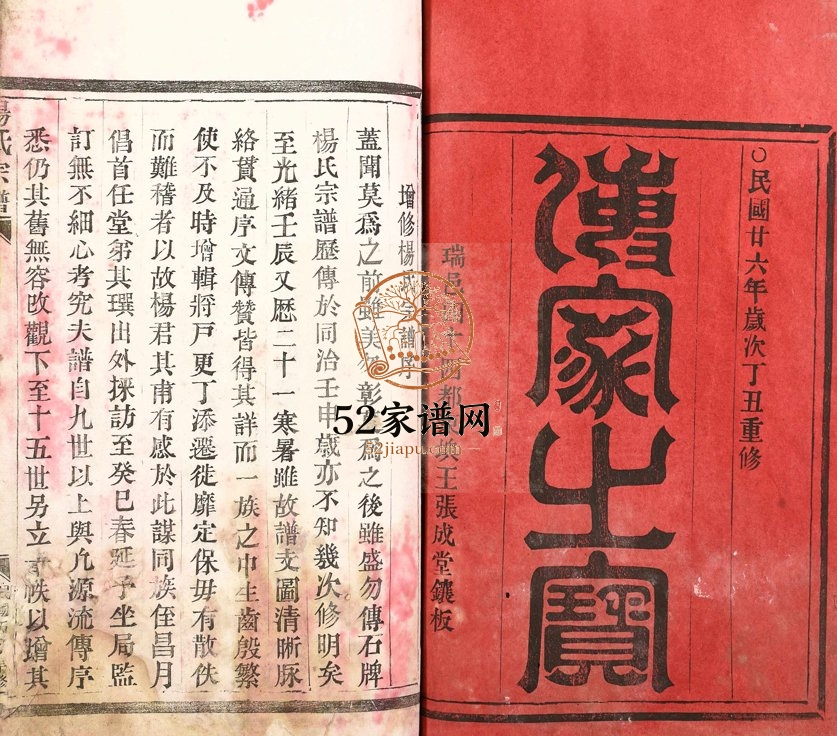 ○民國廿六年歲次丁丑重修
傳家之寶
瑞邑 十四都 王張成堂鐫板
增修楊 譜序
蓋聞莫爲之前雖美勿彰 爲之後雖盛勿傳石牌
楊氏宗譜歷傳於同治壬申歲亦不知幾次修明矣
至光緒壬辰又歷二十一寒暑雖故譜支圖清晰脉
絡貫通序文傳贊皆得其詳而一族之中生齒殷繁
使不及時增輯將戸更丁添遷徙靡定保毋有散佚
而難稽者以故楊君其甫有感於此謀同族侄昌月
倡首任堂弟其撰出外採訪至癸巳春延予坐局監
訂無不細心考究夫譜自九世以上與允源流傳序
悉仍其舊無容改觀下至十五世另立 帙以增其
楊氏宗譜
52家谱网
52jiapu.com